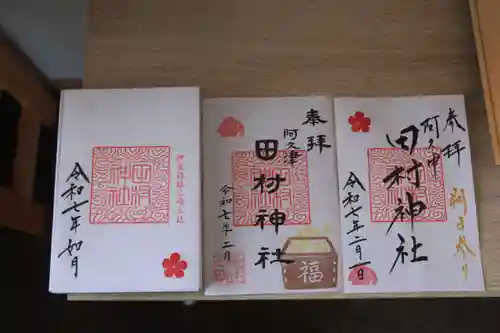 令和七年如月
田村
神社
奉拝
阿久津
田村神社
令和七年二月
福
奉拝
阿久津
田村神社
令和七年二月一日
朔日参り